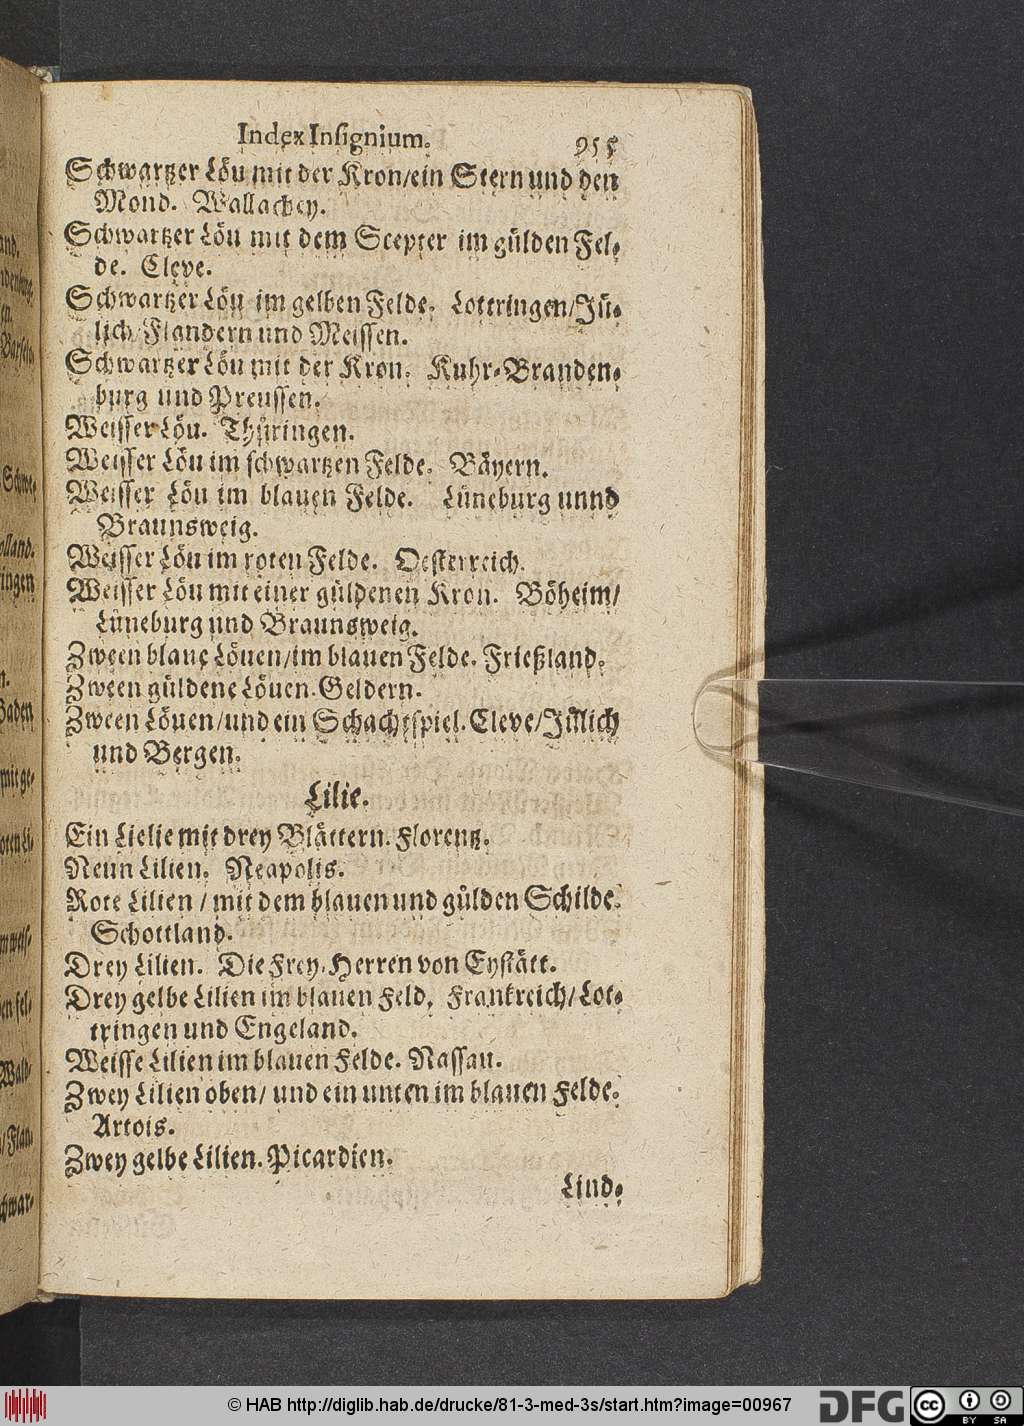 Index Insignium. 955
Schwartzer Löu mit der Kron/ein Stern und den
Mond. Wallachey.
Schwartzer Löu mit dem Scepter im gülden Fel-
de. Cleve.
Schwartzer Löu im gelben Felde. Lottringen/Jü-
lich/Flandern und Meissen.
Schwartzer Löu mit der Kron. Kuhr-Branden-
burg und Preussen.
Weisser Löu. Thüringen.
Weisser Löu im schwartzen Felde. Bäyern.
Weisser Löu im blauen Felde. Lüneburg unnd
Braunsweig.
Weisser Löu im roten Felde. Oesterreich.
Weisser Löu mit einer güldenen Kron. Böheim/
Lüneburg und Braunsweig.
Zween blaue Löuen/im blauen Felde. Frießland.
Zween güldene Löuen. Geldern.
Zween Löuen/und ein Schachtspiel. Cleve/Jülich
und Bergen.
Lilie.
Ein Lielie mit drey Blättern. Florentz.
Neun Lilien. Neapolis.
Rote Lilien / mit dem blauen und gülden Schilde.
Schottland.
Drey Lilien. Die Frey-Herren von Eystätt.
Drey gelbe Lilien im blauen Feld. Frankreich/Lot-
tringen und Engeland.
Weisse Lilien im blauen Felde. Nassau.
Zwey Lilien oben/ und ein unten im blauen Felde.
Artois.
Zwey gelbe Lilien. Picardien.
Lind-
© HAB http://diglib.hab.de/drucke/81-3-med-3s/start.htm?image=00967
DFG
cc
BY SA